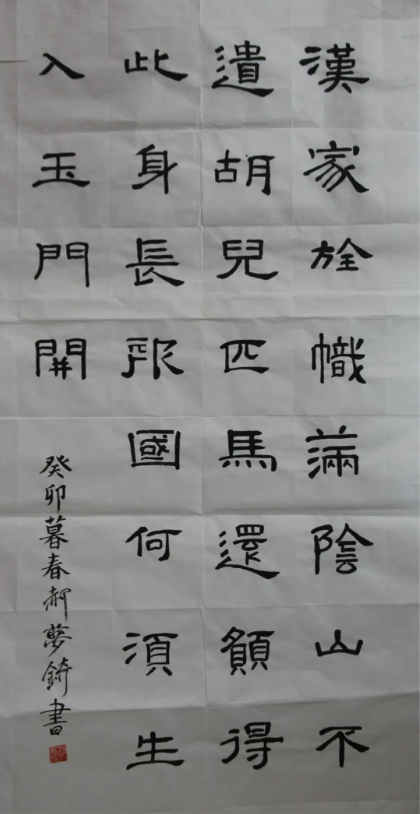 漢家旌幟滿陰山不
遣胡兒匹馬還願得
此身長報國何須生
入玉門開
癸卯暮春郝夢錡書